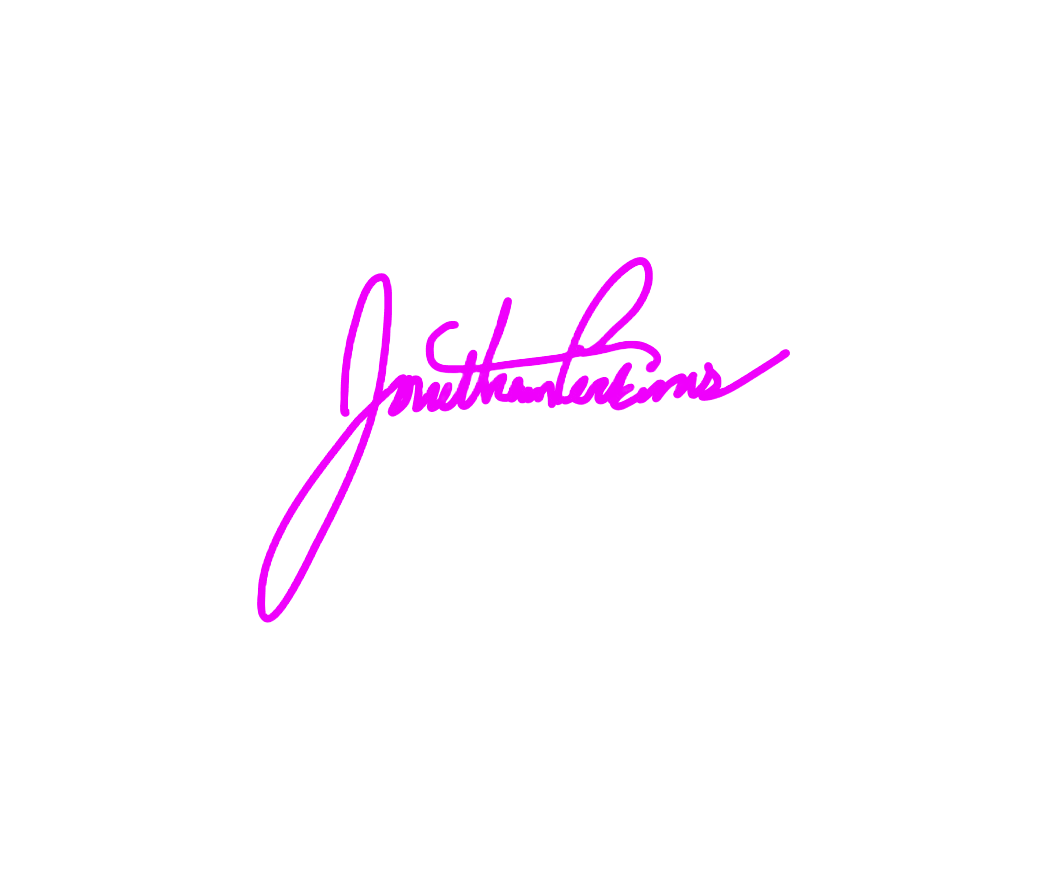 Jonathan Perkins